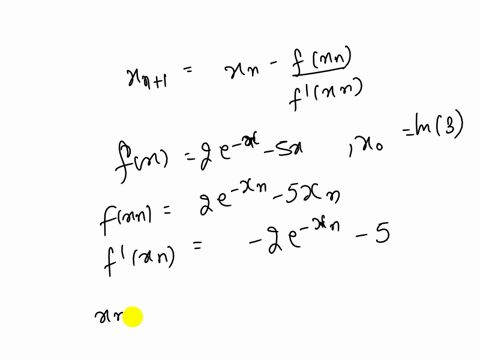 xn+1 = xn - f(xn)/f'(xn)
f(x) = 2e^-x - 5x , x0 = ln(3)
f(xn) = 2e^-xn - 5xn
f'(xn) = -2e^-xn - 5
xn